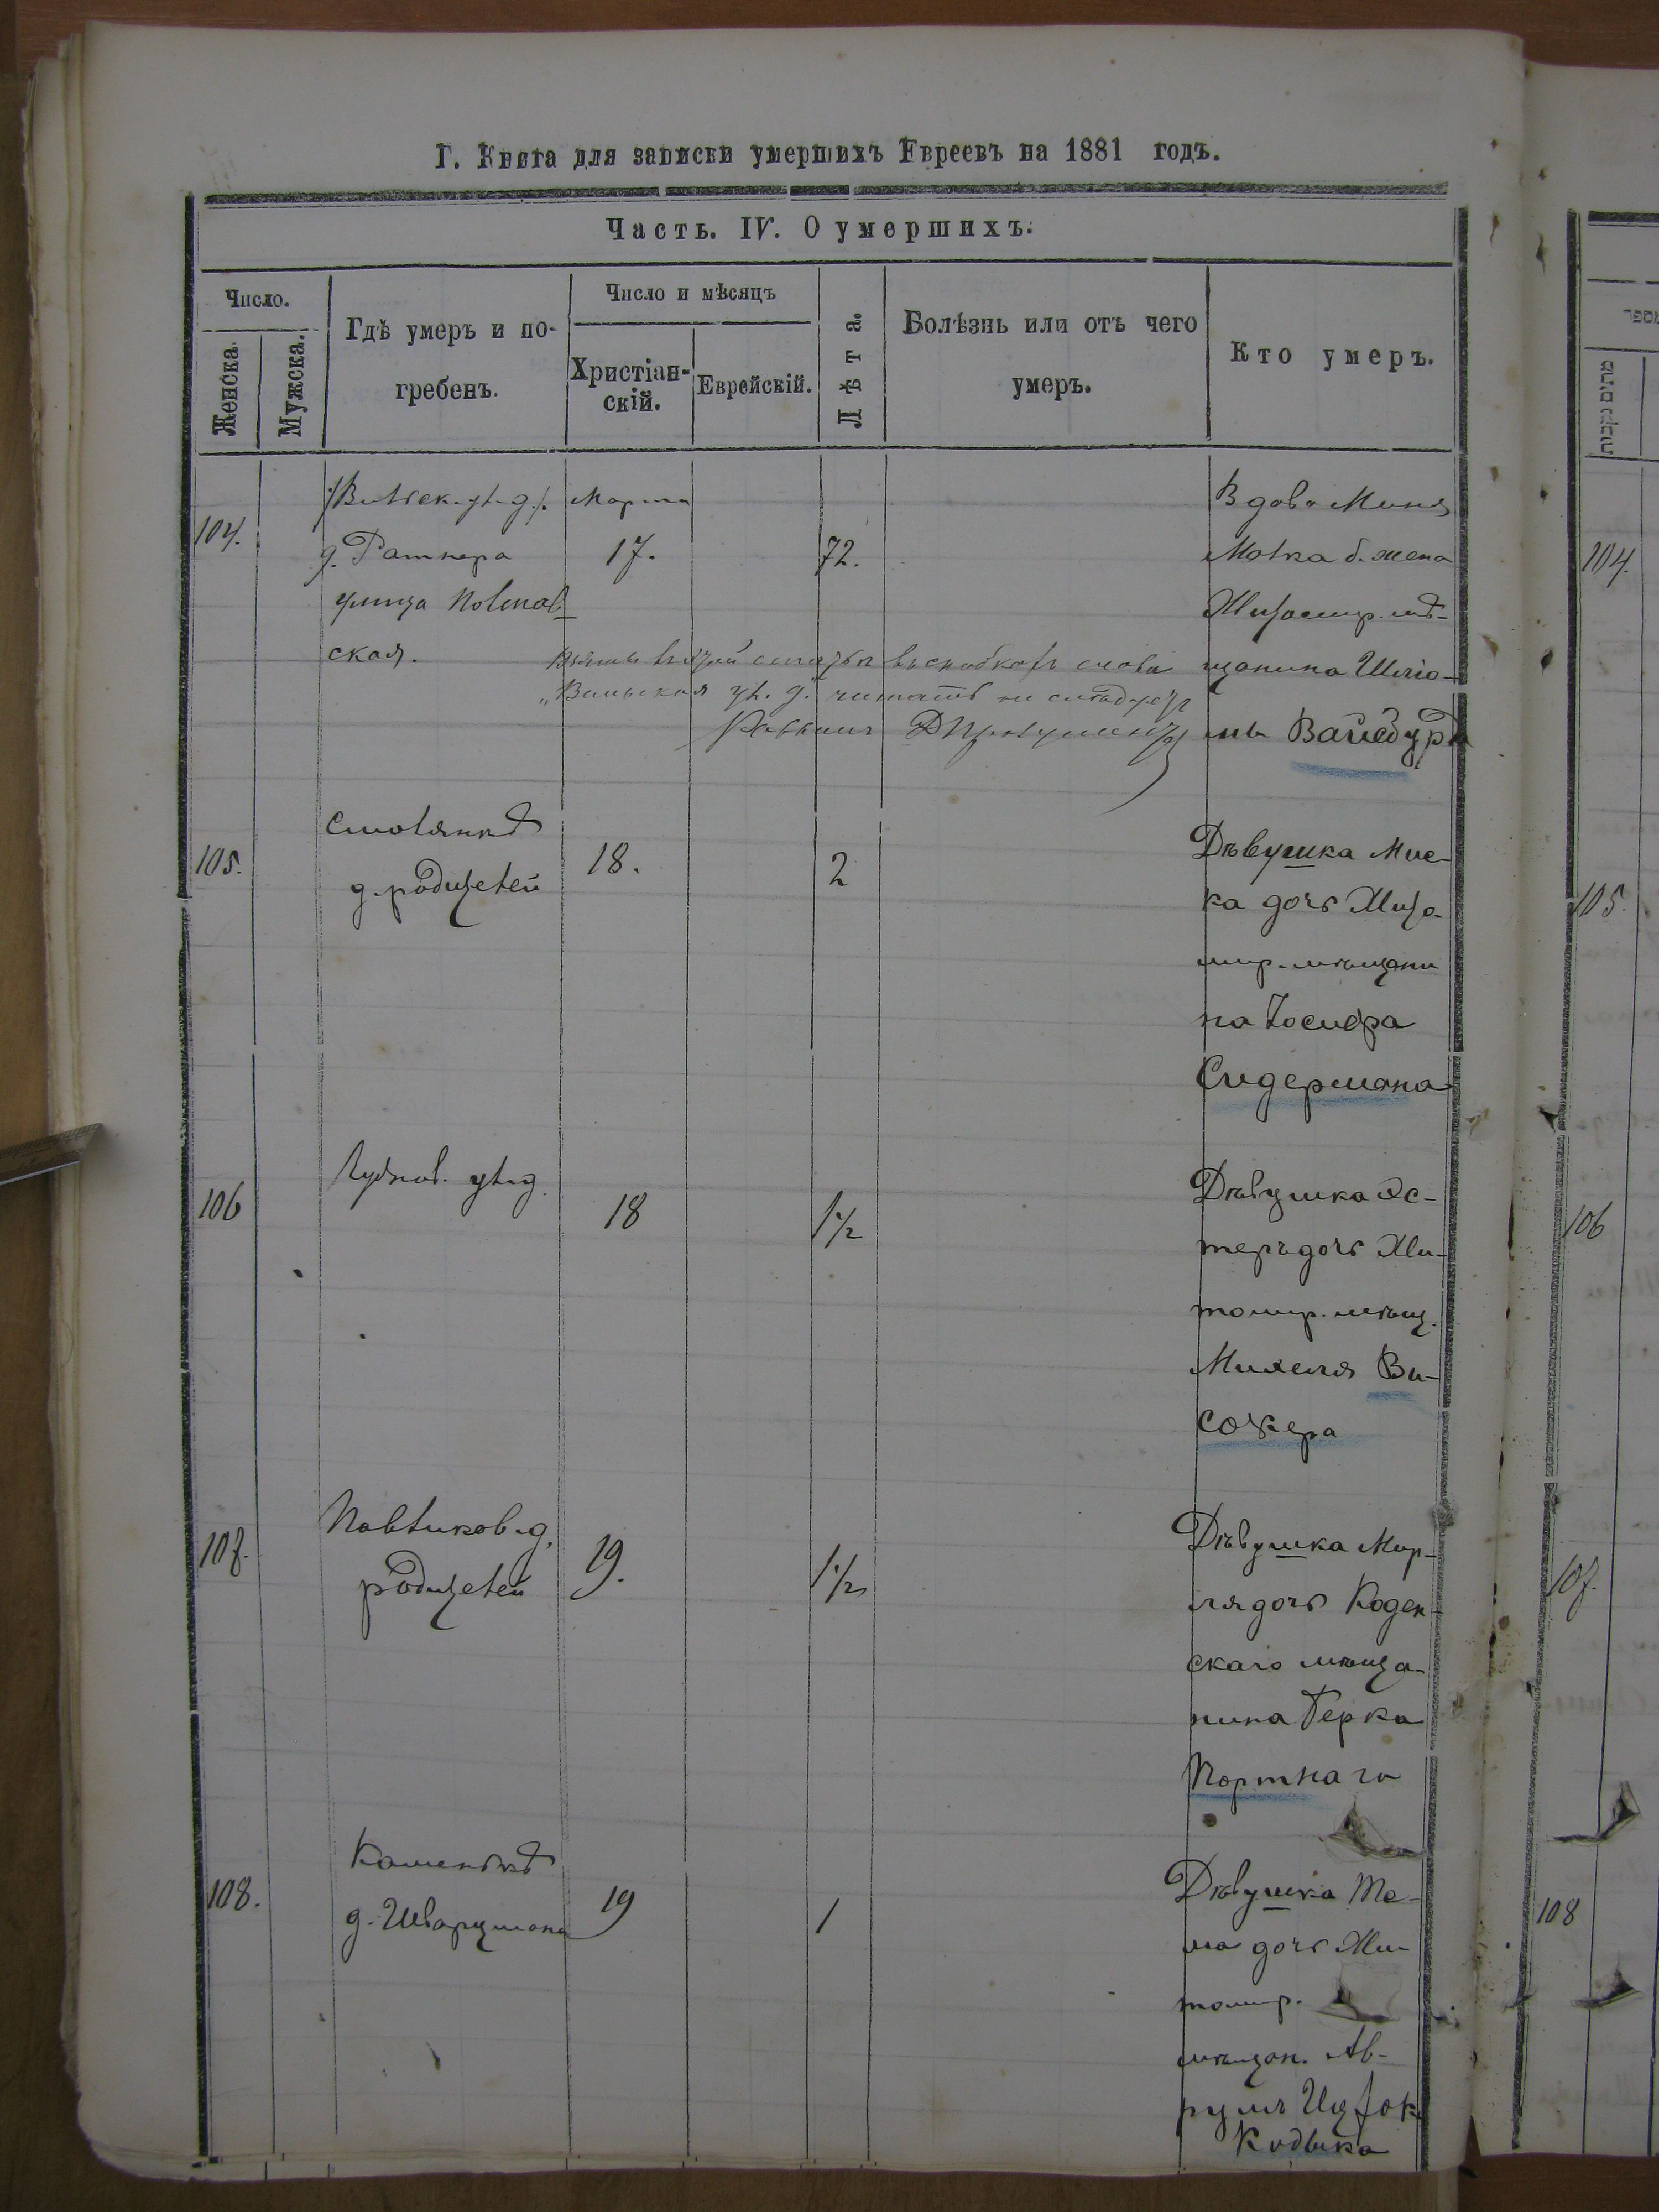 Г. Книга для записки умершихъ Евреевъ на 1881 годъ.
Часть. IV. О умершихъ.
Число.
Женска.
Мужска.
Гдѣ умеръ и по-
гребенъ.
Число и мѣсяцъ
Христіан-
скій.
Еврейскій.
Лѣта.
Болѣзнь или отъ чего
умеръ.
Кто умеръ.
104.
ул. д.
д. Ратнера
улица
ская.
Марта
17.
72.
Вдова Миня
б. жена
Житомир. мѣ-
щанина Шліо-
мы
въ скобкахъ слова
ул. д. читать не слѣдуетъ
Раввинъ
105.
Смолянкѣ
д. родителей
18.
2
Дѣвушка Мие-
ка дочь Жито-
мир. мѣщани
на Іосифа
Сидермана
106
Чуднов. ул. д.
18
1 1/2
Дѣвушка Эс-
теръ дочь Жи-
томир. мѣщ.
Михеля Ви-
сокера
107.
д.
родителей
19.
1 1/2
Дѣвушка Мир-
ля дочь Коден-
скаго мѣща-
нина Берка
Портнаго
108.
Каменькѣ
д. Шварцмана
19
1
Дѣвушка Те-
ма дочь Жи-
томир.
мѣщан. Ав-
румъ Ицхок
מספר
מתים נקבות
104.
105.
106
107.
108